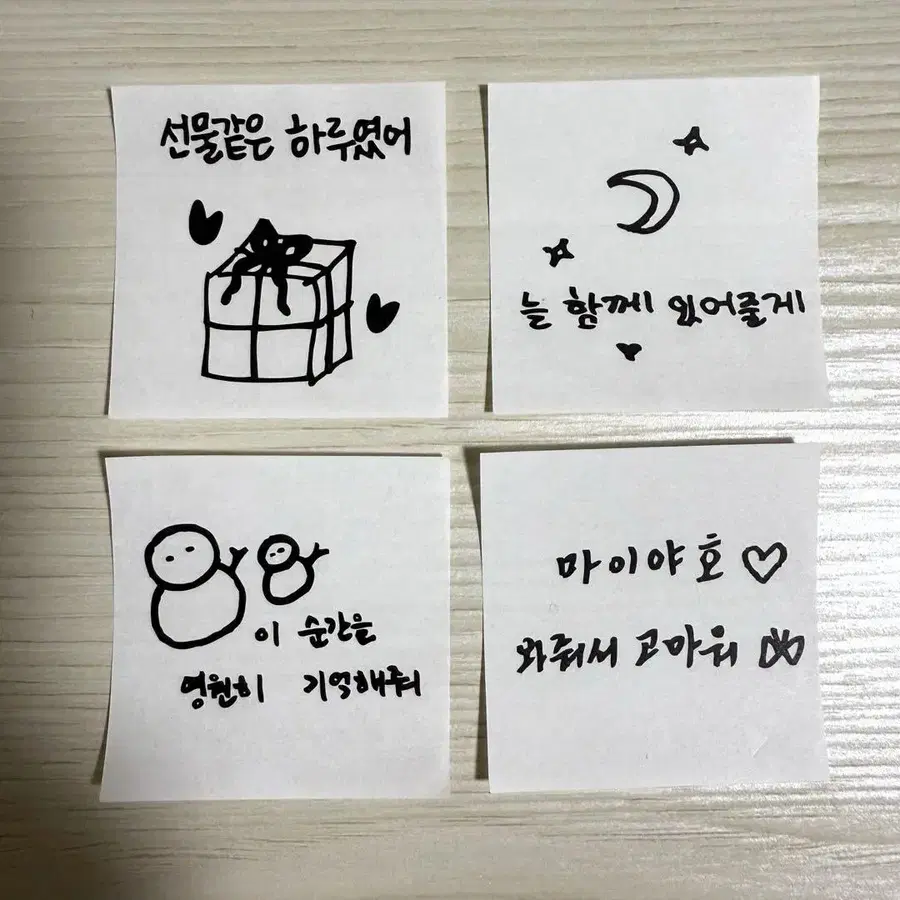 선물같은 하루였어
늘 함께 있어줄게
이 순간을
영원히 기억해줘
마이야호♡
와줘서 고마워